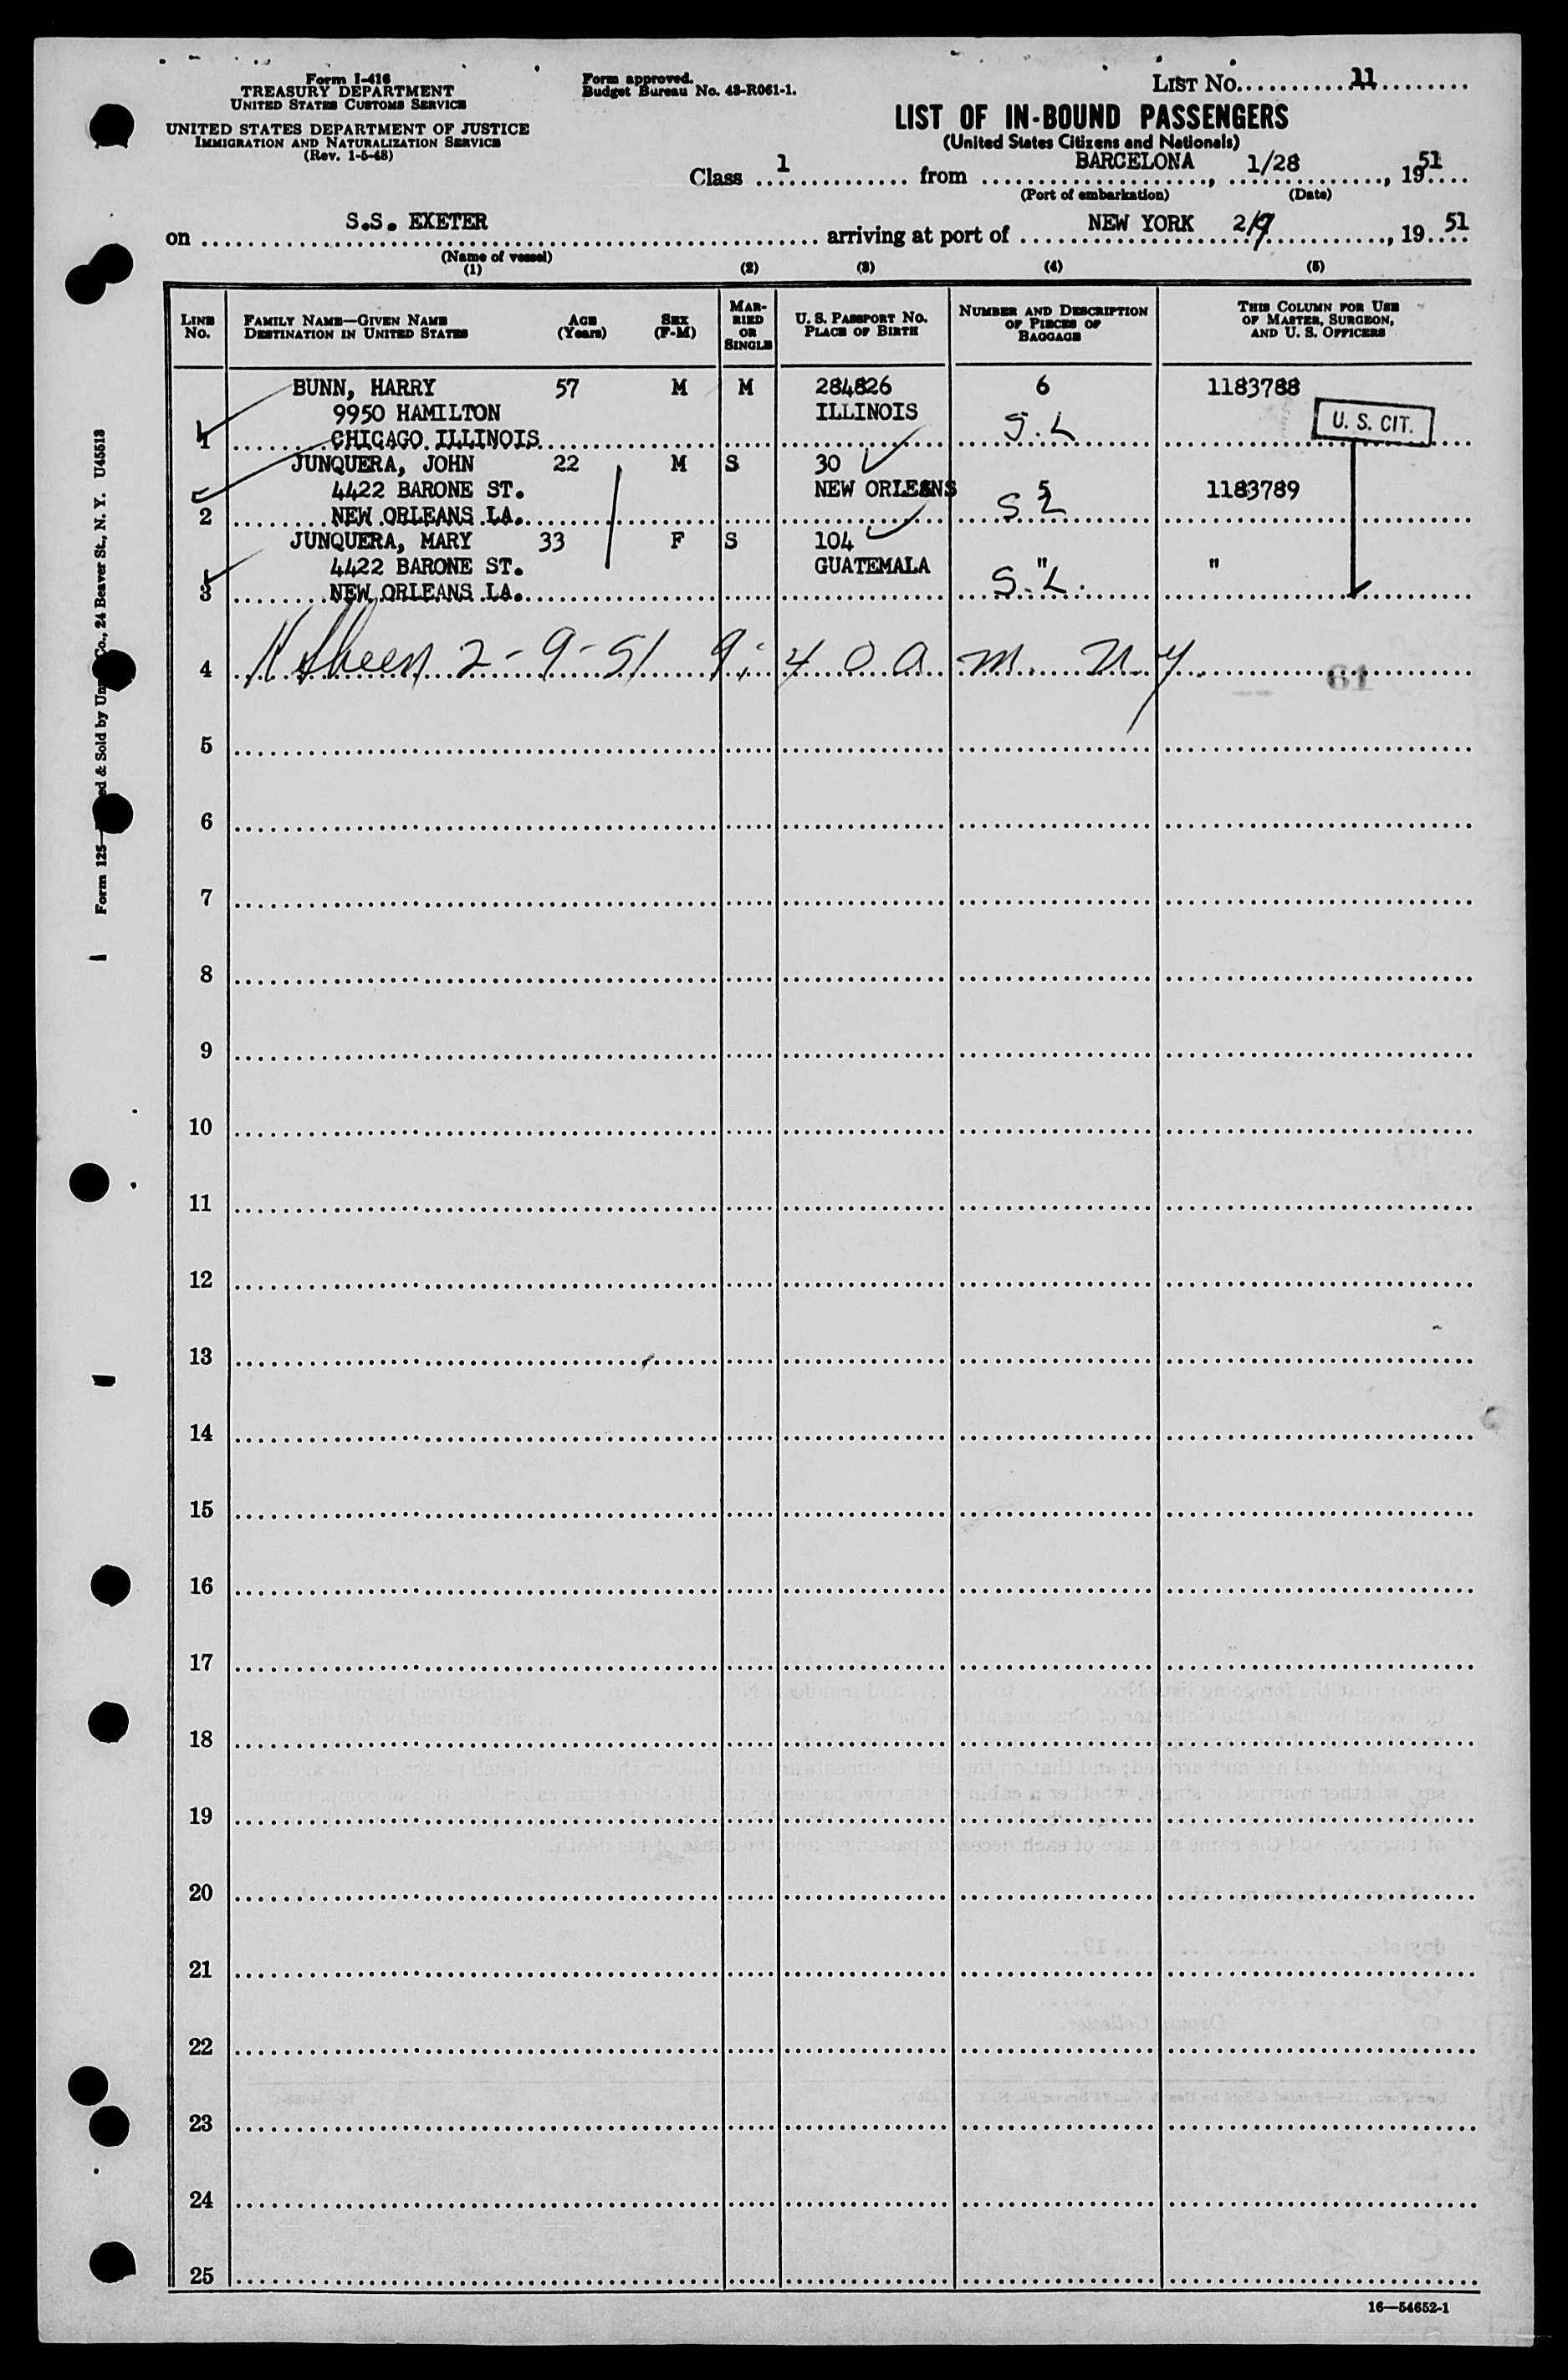 Form I-416
TREASURY DEPARTMENT
UNITED STATES CUSTOMS SERVICE
UNITED STATES DEPARTMENT OF JUSTICE
IMMIGRATION AND NATURALIZATION SERVICE
(Rev. 1-5-48)
Form approved.
Budget Bureau No. 43-R061-1.
LIST No. 11
LIST OF IN-BOUND PASSENGERS
(United States Citizens and Nationals)
Class 1 from BARCELONA, 1/28, 1951
(Port of embarkation) (Date)
on S.S. EXETER arriving at port of NEW YORK 2/9, 1951
(Name of vessel)
(1) (2) (3) (4) (5)
LINE No. FAMILY NAME—GIVEN NAME DESTINATION IN UNITED STATES AGE (Years) SEX (F-M) MARRIED OR SINGLE U. S. PASSPORT NO. PLACE OF BIRTH NUMBER AND DESCRIPTION OF PIECES OF BAGGAGE THIS COLUMN FOR USE OF MASTER, SURGEON, AND U. S. OFFICERS
BUNN, HARRY 57 M M 284826 6 1183788
9950 HAMILTON ILLINOIS S.L U. S. CIT.
1 CHICAGO ILLINOIS
JUNQUERA, JOHN 22 M S 30
4422 BARONE ST. NEW ORLEANS 5 1183789
2 NEW ORLEANS LA. S L
JUNQUERA, MARY 33 F S 104
4422 BARONE ST. GUATEMALA " "
3 NEW ORLEANS LA. S.L.
4 2-9-51 9:40 a m. N.Y. 61
5
6
7
8
9
10
11
12
13
14
15
16
17
18
19
20
21
22
23
24
25
16—54652-1
Form 125— ed & Sold by Un Co., 24 Beaver St., N. Y. U45513